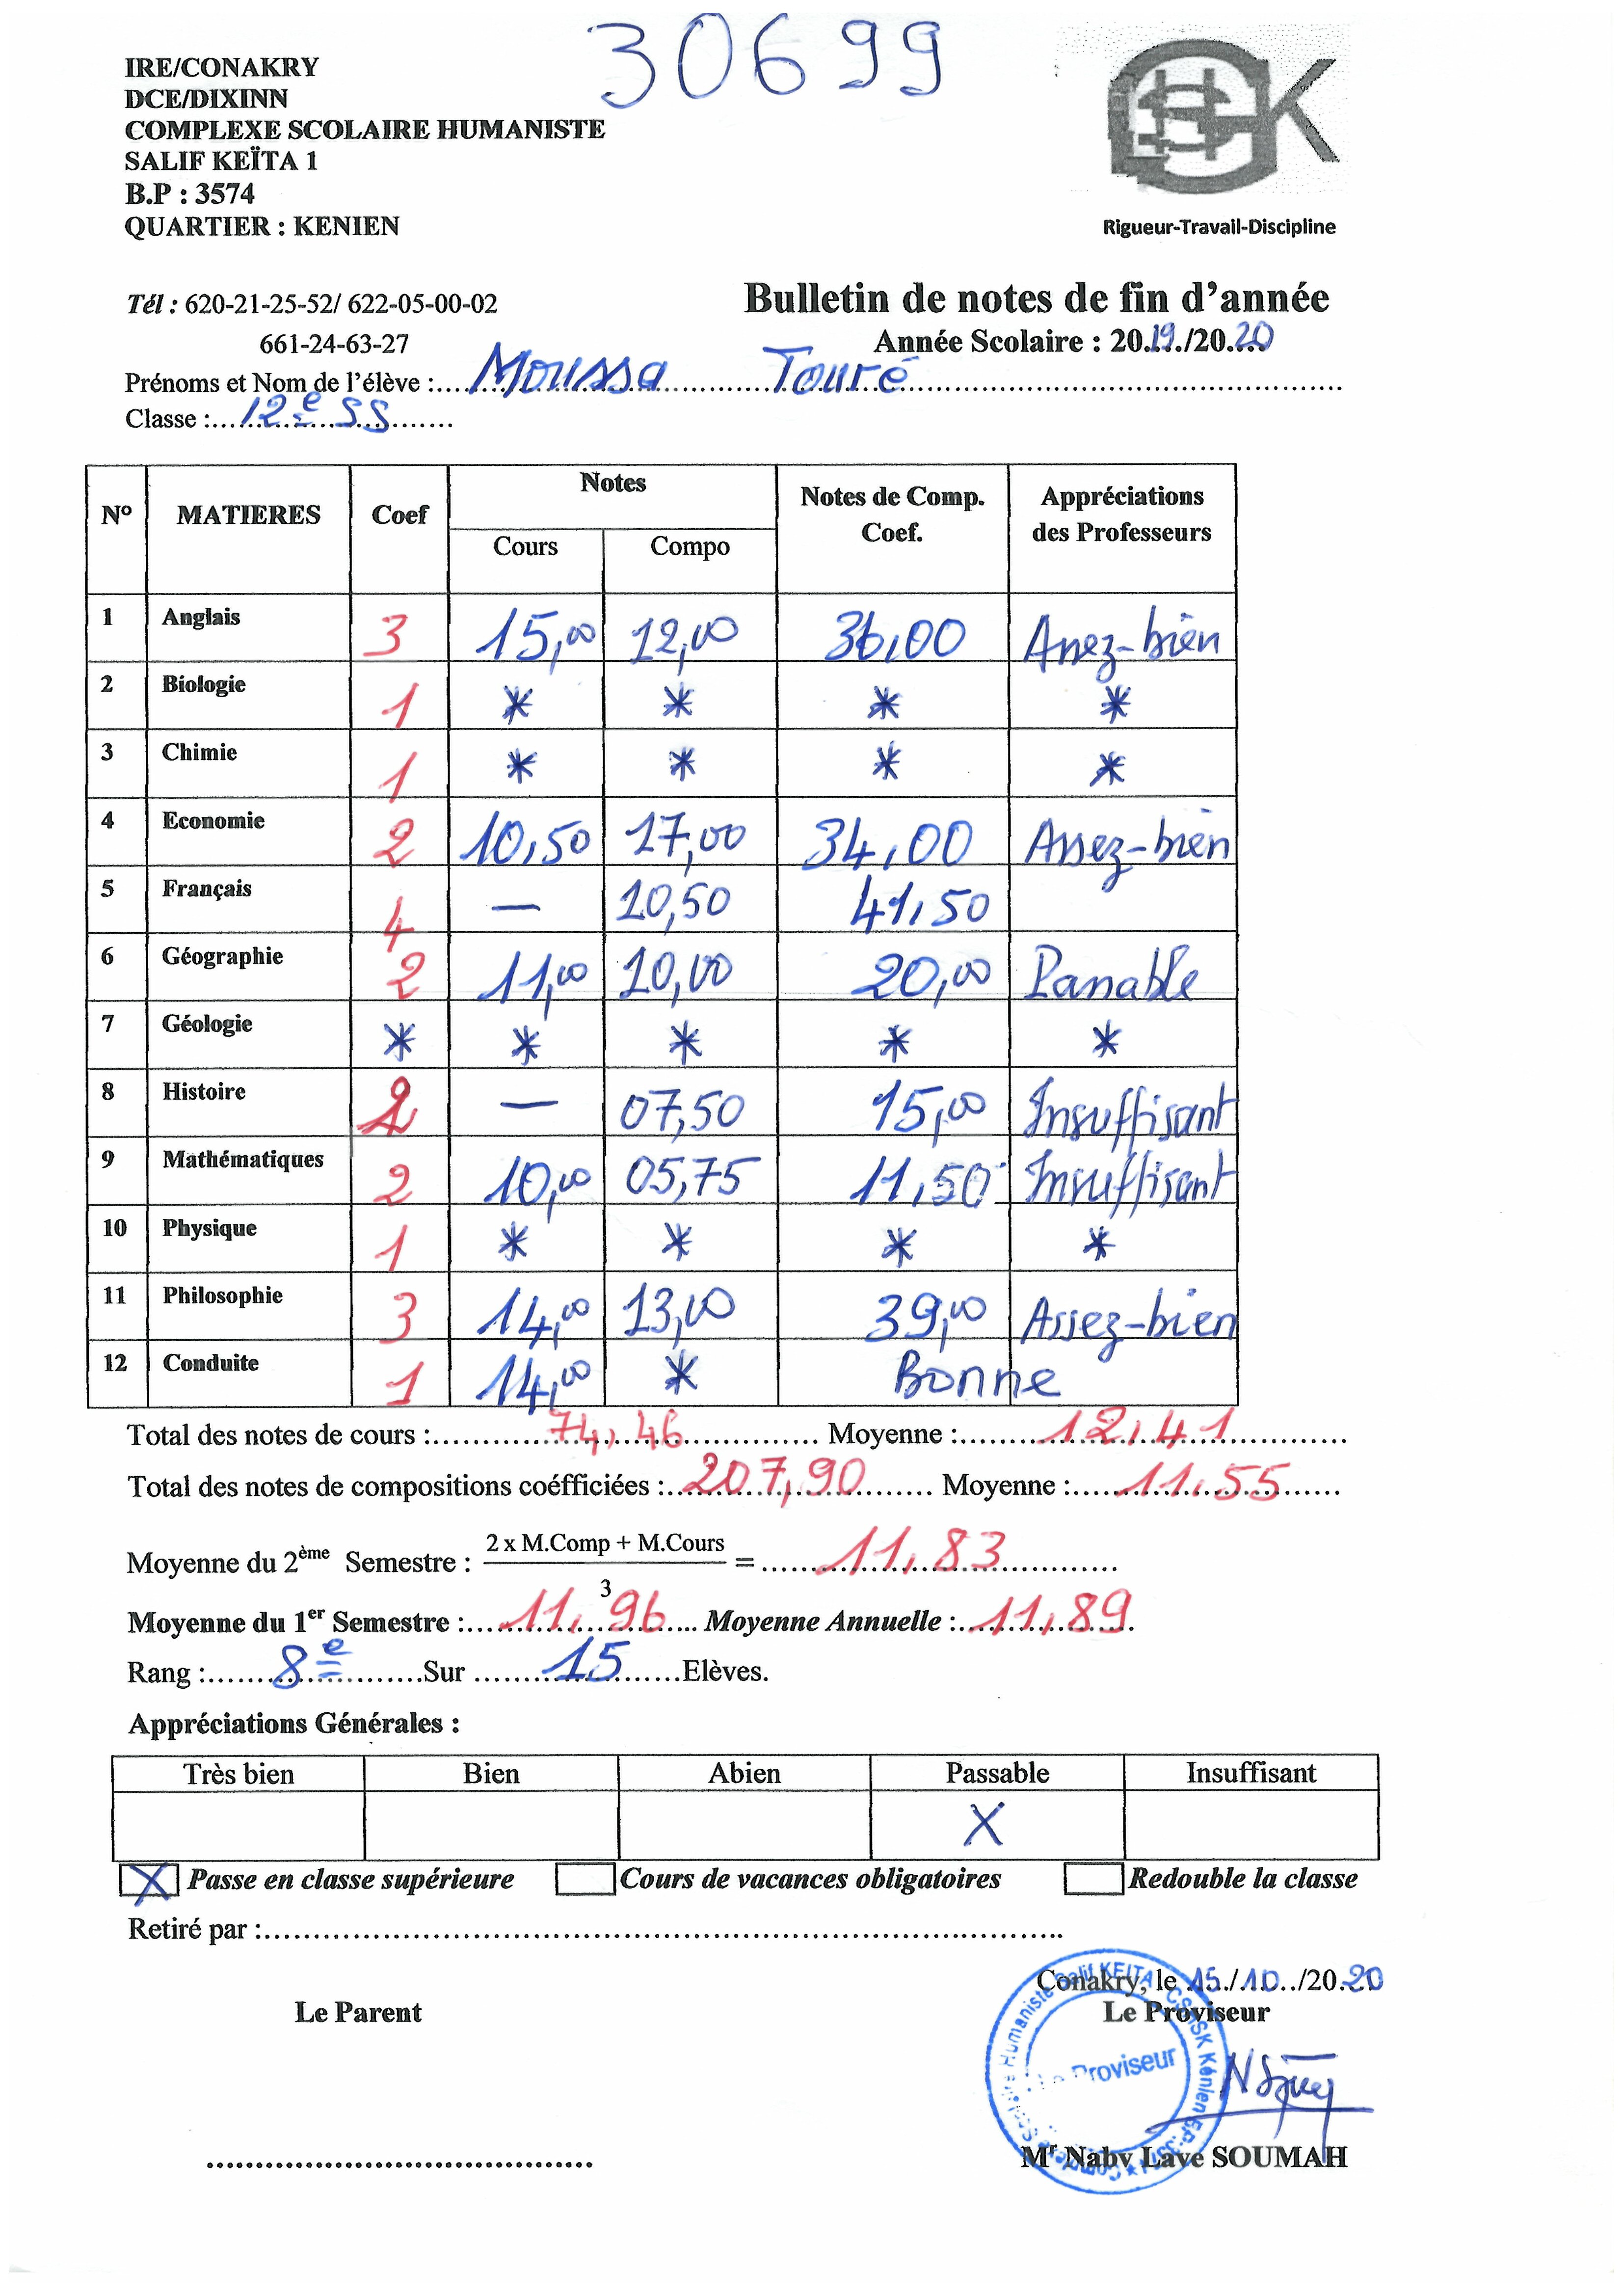 30699
IRE/CONAKRY
DCE/DIXINN
COMPLEXE SCOLAIRE HUMANISTE
SALIF KEÏTA 1
B.P : 3574
QUARTIER : KENIEN
Rigueur-Travail-Discipline
Tél : 620-21-25-52/ 622-05-00-02
661-24-63-27
Bulletin de notes de fin d'année
Année Scolaire : 2019/2020
Prénoms et Nom de l'élève : Moussa Touré
Classe : 12e SS
N° MATIERES Coef Notes Notes de Comp. Coef. Appréciations des Professeurs
Cours Compo
1 Anglais 3 15,00 12,00 36,00 Assez-bien
2 Biologie 1 * * * *
3 Chimie 1 * * * *
4 Economie 2 10,50 17,00 34,00 Assez-bien
5 Français 4 — 10,50 41,50
6 Géographie 2 11,00 10,00 20,00 Passable
7 Géologie * * * * *
8 Histoire 2 — 07,50 15,00 Insuffisant
9 Mathématiques 2 10,00 05,75 11,50 Insuffisant
10 Physique 1 * * * *
11 Philosophie 3 14,00 13,00 39,00 Assez-bien
12 Conduite 1 14,00 * Bonne
Total des notes de cours : 74,46 Moyenne : 12,41
Total des notes de compositions coéfficiées : 207,90 Moyenne : 11,55
Moyenne du 2ème Semestre : 2 x M.Comp + M.Cours / 3 = 11,83
Moyenne du 1er Semestre : 11,96 Moyenne Annuelle : 11,89
Rang : 8e Sur 15 Elèves.
Appréciations Générales :
Très bien Bien Abien Passable Insuffisant
X
X Passe en classe supérieure Cours de vacances obligatoires Redouble la classe
Retiré par :
Conakry, le 15/10/2020
Le Parent Le Proviseur
Complexe Scolaire Humaniste Salif KEITA CSHSK Kénien BP:3574
Le Proviseur
Mr Naby Laye SOUMAH